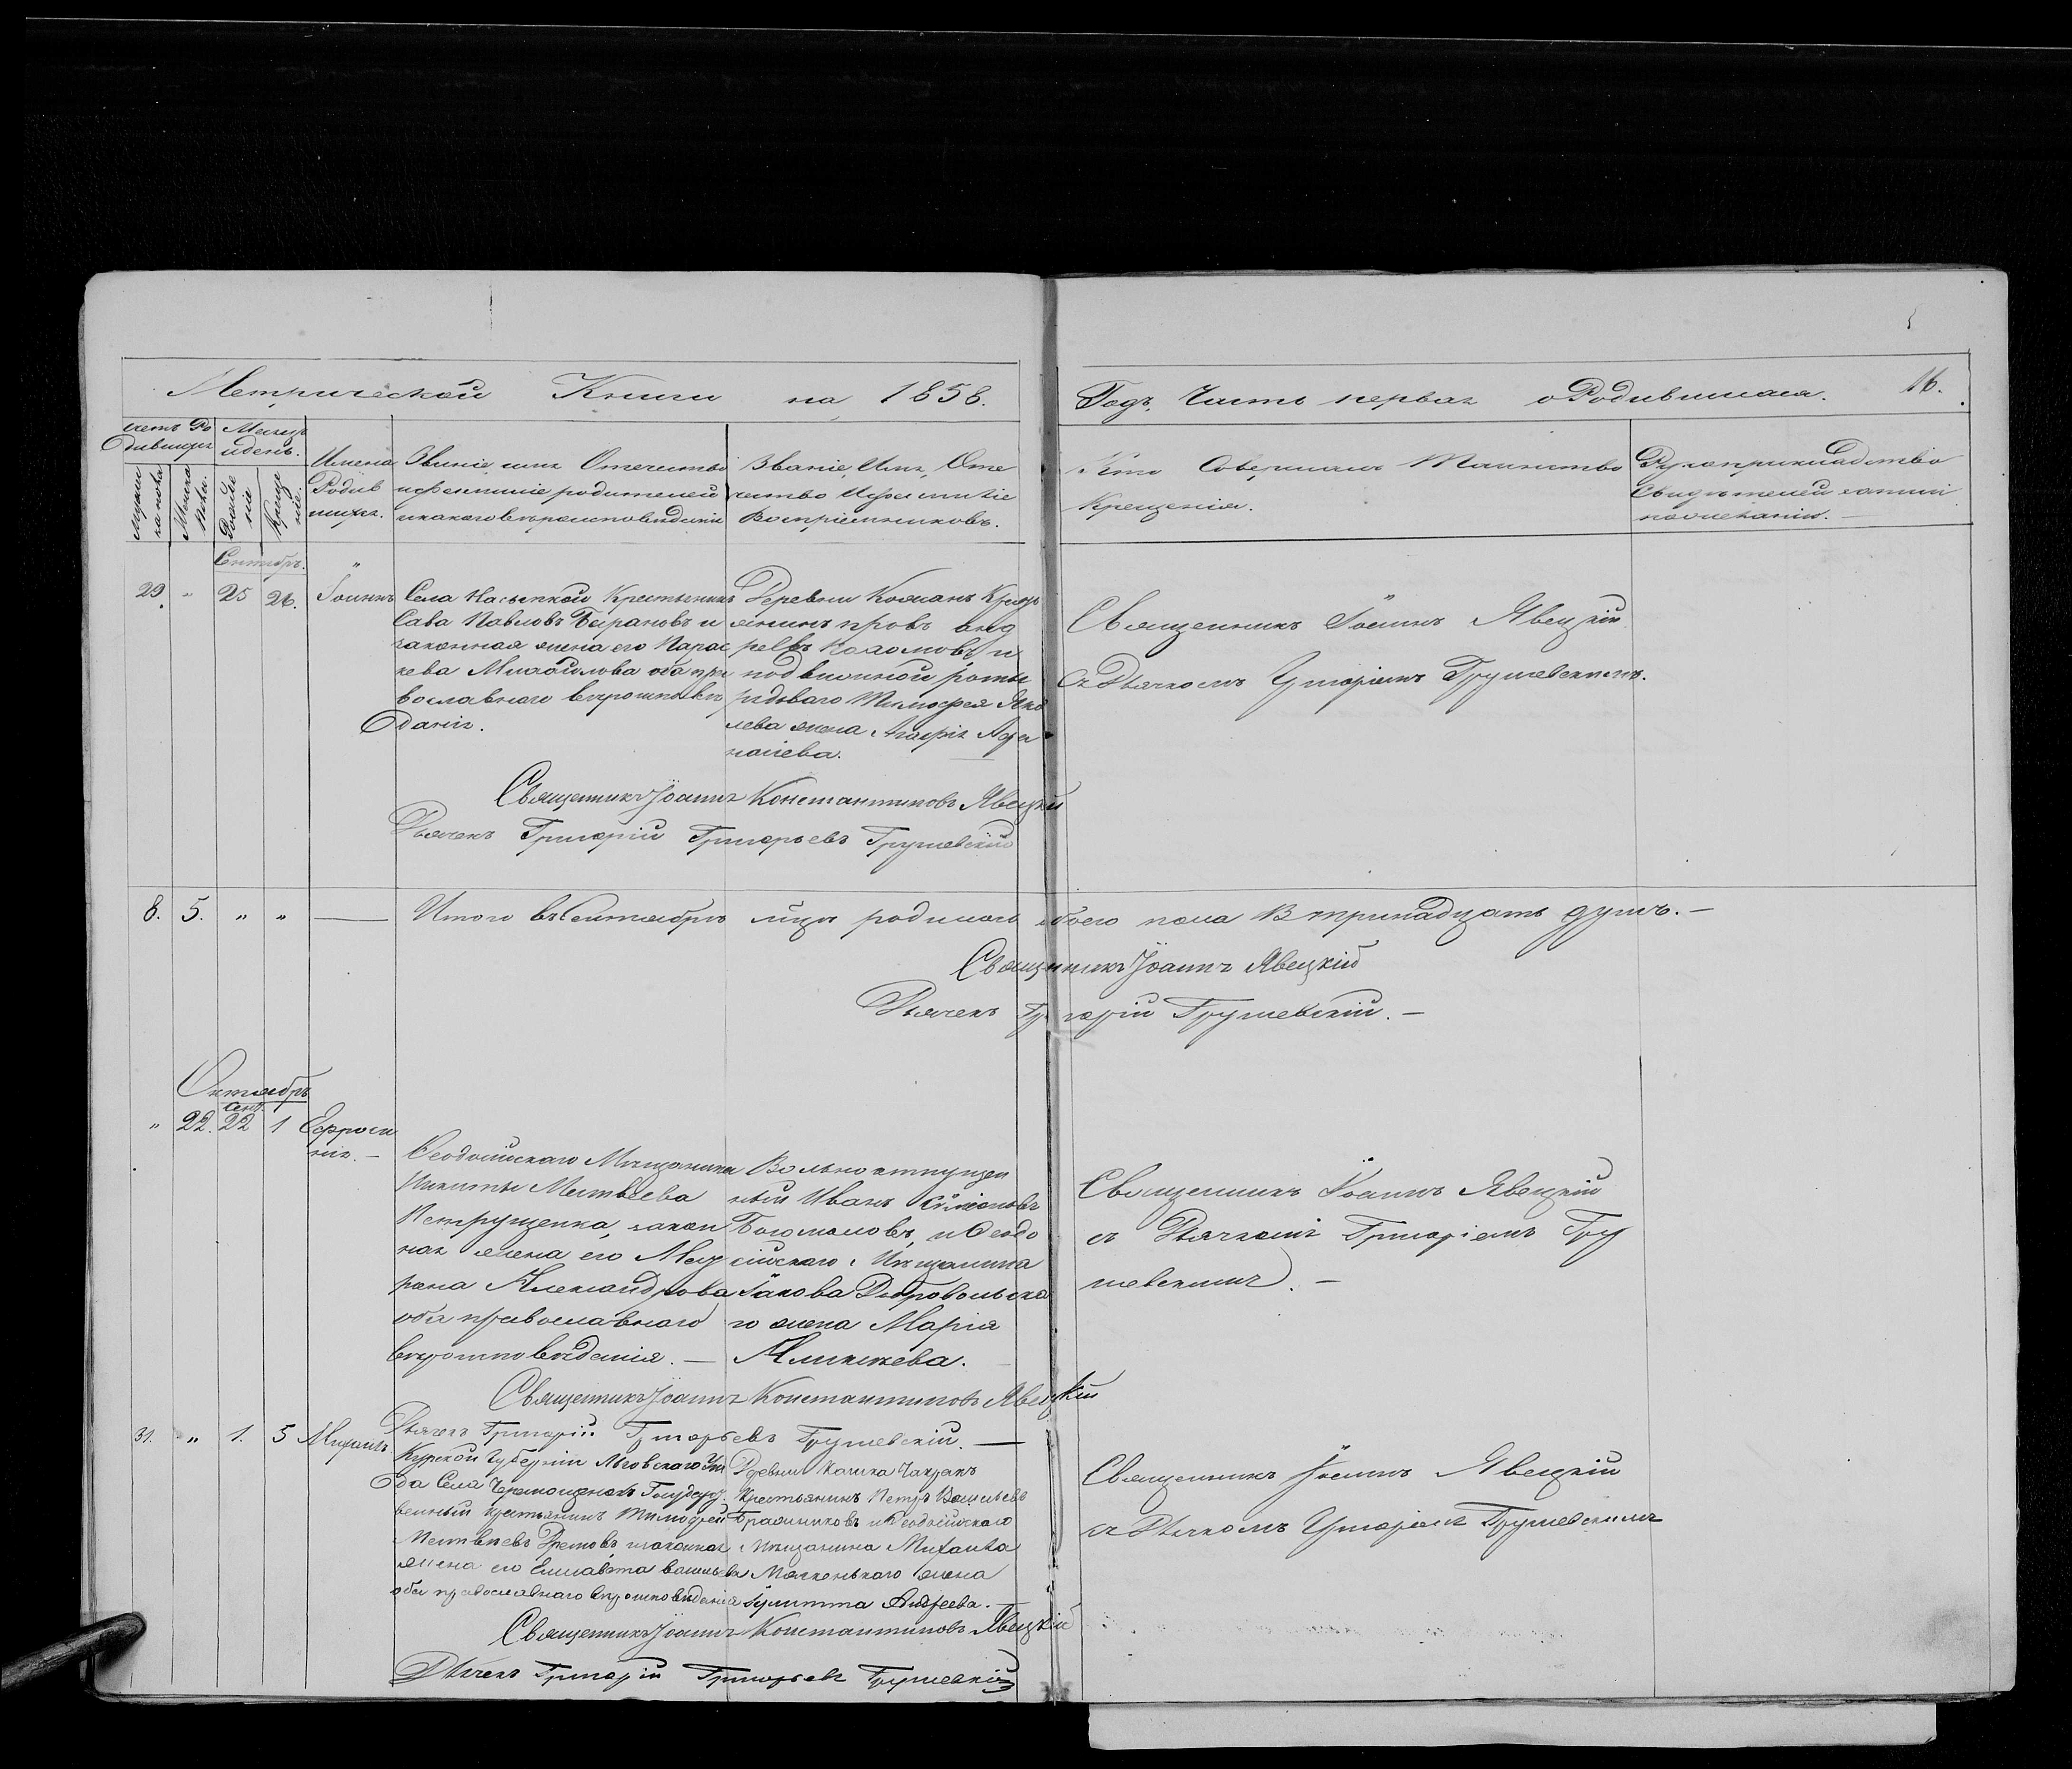 Метрической Книги на 1858.
Годъ, Часть первая о Родившихся. 16.
счетъ Ро
дившихъ
Мѣсяцъ
идень.
Мужеска
пола
Женска
пола.
Рожде
нія
Креще
нія.
Имена
Родив
шихся.
Званіе, имя Отечество
ифамиліе родителей
икакого вѣроисповѣданія
Званіе, Имя, Оте
чество Ифамиліе
Воспріемниковъ.
Кто Совершалъ Таинство
Крещенія.
Рукоприкладство
Свидѣтелей
пожеланію.
Сентябрь.
29. " 25 26. Іоаннъ
Села Насыпкой Крестьянинъ
Сава Павловъ Барановъ и
законная жена его Парас
кева Михайлова оба пра
вославнаго вѣроисповѣ
данія.
Деревни Крест
янинъ
и
подвижной роты
рядоваго Тимофея Яко
лева жена Агафія Афа
насіева.
Священникъ Іоаннъ Явецкій
съ Дьячкомъ Григоріемъ Грушевскимъ.
Священникъ Іоаннъ Константиновъ Явецкій
Дьячекъ Григорій Григорьевъ Грушевскій
8. 5. " " — Итого въ Сентябрѣ мцѣ родилося обоего пола 13 тринадцать душъ. —
Священникъ Іоаннъ Явецкій
Дьячекъ Григорій Грушевскій. —
Октябрь
Сент.
" 22. 22 1 Ефроси
нія. —
Ѳеодосійскаго Мѣщанина
Никиты Матвѣева
Петрущенка, закон
ная жена его Мат
рона Александрова
оба православнаго
вѣроисповѣданія. —
Вольноотпущен
ный Иванъ Симоновъ
Богомоловъ, и Ѳеодо
сійскаго Мѣщанина
Іакова Добровольска
го жена Марія
Алексѣева.
Священникъ Іоаннъ Явецкій
съ Дьячкомъ Григоріемъ Гру
шевскимъ. —
Священникъ Іоаннъ Константиновъ Явецкій
Дьячекъ Григорій Григорьевъ Грушевскій. —
31. " 1. 5 Михаилъ.
Курской Губерніи Льговскаго Уѣз
да Села Черемошенокъ Государст
венный крестьянинъ Тимофей
Матвѣевъ изаконная
жена его Елисавета Васильева
оба православнаго вѣроисповѣданія
Деревни
Крестьянинъ Петръ Васильевъ
Бражниковъ и Ѳеодосійскаго
Мѣщанина Михаила
жена
Іулитта Андреева.
Священникъ Іоаннъ Явецкій
съ Дьячкомъ Григоріемъ Грушевскимъ
Священникъ Іоаннъ Константиновъ Явецкій
Дьячекъ Григорій Григорьевъ Грушевскій